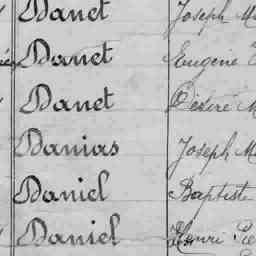 Danet Joseph M
Danet Eugène
Danet Désiré M
Danias Joseph M
Daniel Baptiste
Daniel Henri Pie